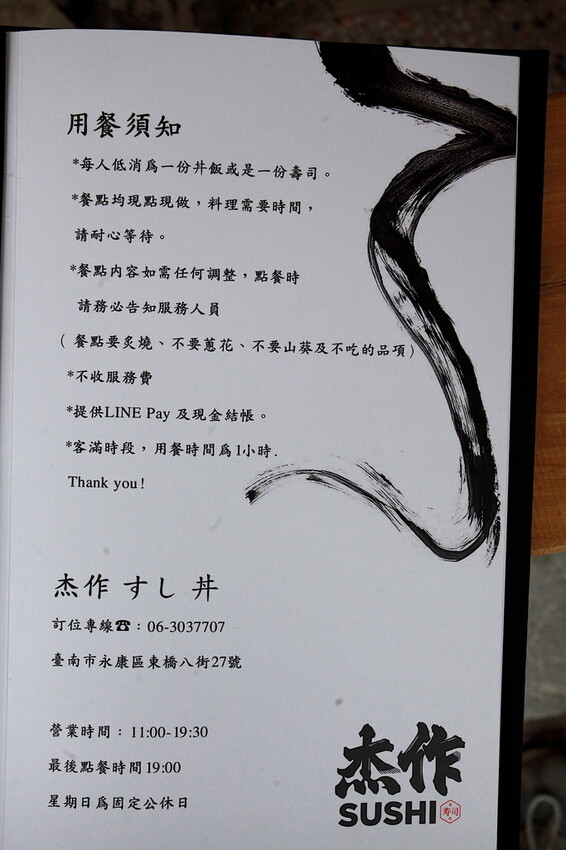 用餐須知
*每人低消為一份丼飯或是一份壽司。
*餐點均現點現做，料理需要時間，
請耐心等待。
*餐點內容如需任何調整，點餐時
請務必告知服務人員
( 餐點要炙燒、不要蔥花、不要山葵及不吃的品項)
*不收服務費
*提供LINE Pay 及現金結帳。
*客滿時段，用餐時間為1小時.
Thank you!
杰作 すし 丼
訂位專線☎：06-3037707
臺南市永康區東橋八街27號
營業時間：11:00-19:30
最後點餐時間19:00
星期日為固定公休日
杰作
SUSHI 寿司